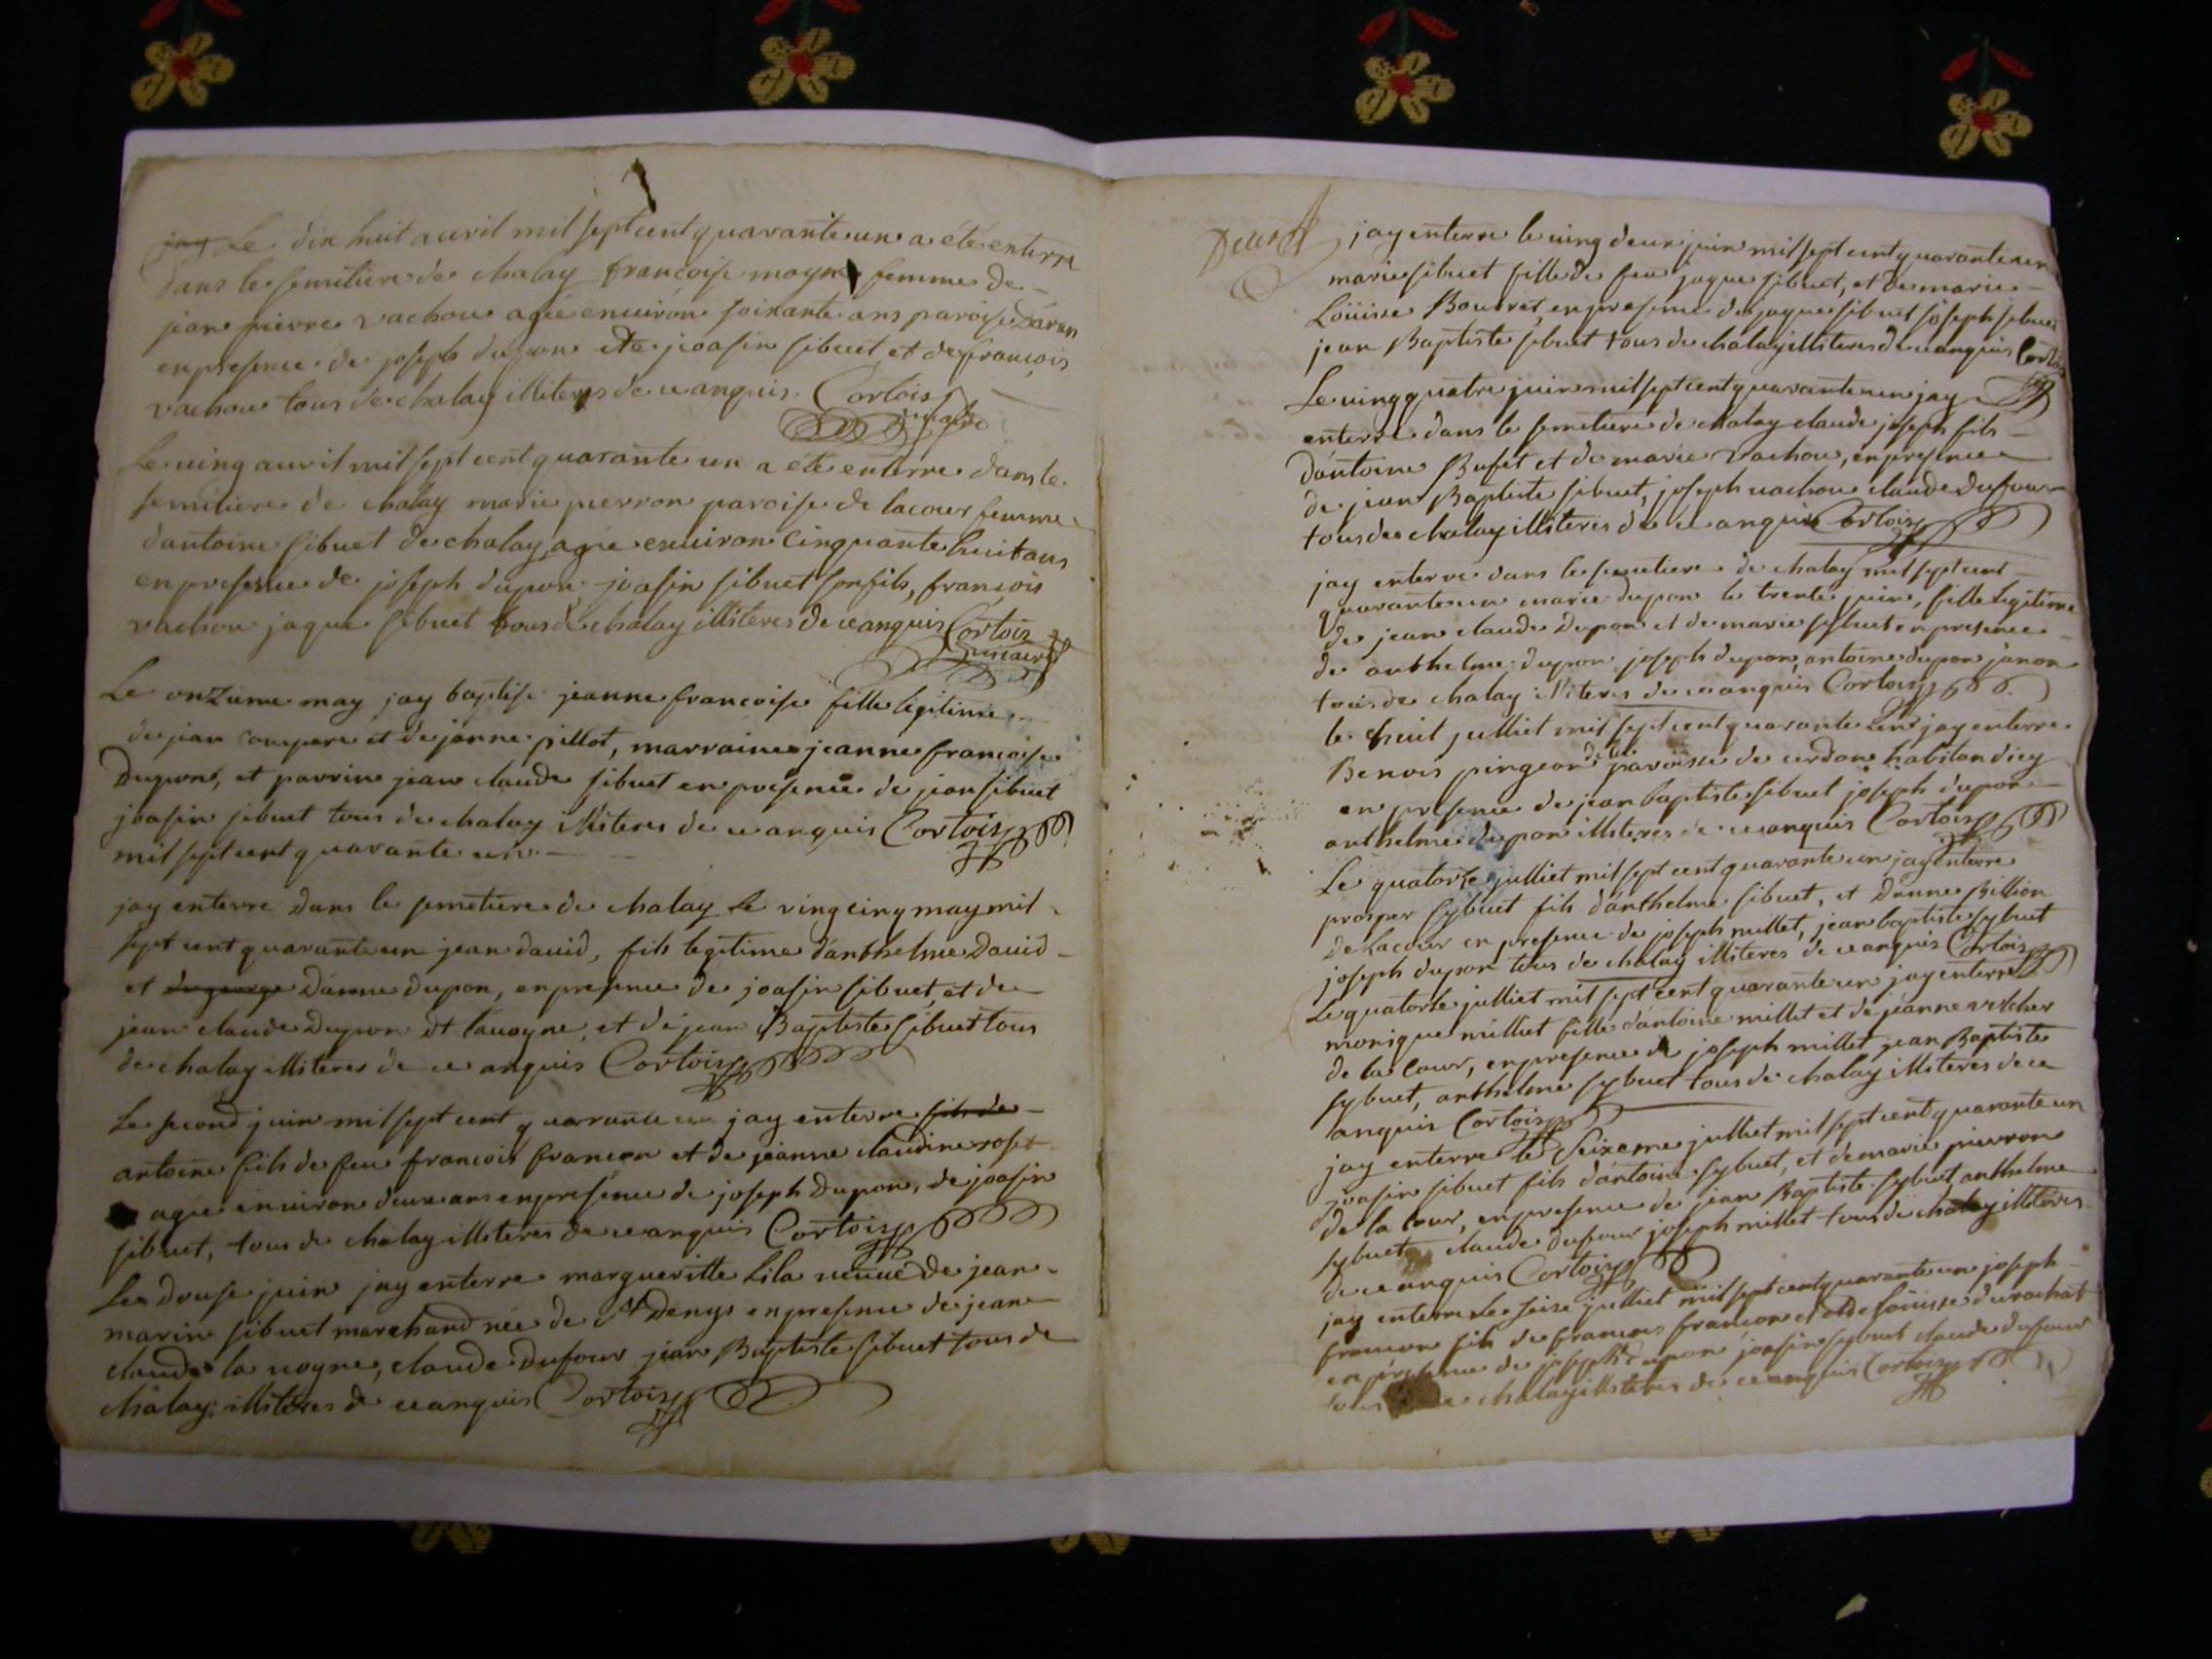 jay Le dix huit avril mil sept cent quarante un a été enterre
dans le semitiere de chalay francoise moyne femme de
jean pierre vachou agée environ soixante ans paroisse
en presence de joseph dupon et de joasin sibuet et de francois
vachou tous de chalay illiteres de ce anquis. Cortois
vicaire
Le ving avril mil sept cent quarante un a été enterre dans le
semitiere de chalay marie pierron paroise de lacour femme
dantoine sibuet de chalay agée environ cinquante huit ans
en presence de joseph dupon joasin sibuet son fils, francois
vachou jaque sibuet tous de chalay illiteres de ce anquis Cortois
vicaire
Le onzieme may jay baptise jeanne francoise fille legitime
de jean compere et de janne pillot, marraine jeanne francoise
Dupon, et parrin jean claude sibuet en presence de jean sibuet
joasin sibuet tous de chalay illiteres de ce anquis Cortois
mil sept cent quarante un
jay enterre dans le semetiere de chalay Le ving cinq may mil
sept cent quarante un jean david, fils legitime danthelme David
et Danne dupon, en presence de joasin sibuet, et de
jean claude Dupon dt lavoyne, et de jean Baptiste sibuet tous
de chalay illiteres de ce anquis Cortois
Le second juin mil sept cent quarante un jay enterre fils de
antoine fils de feu francois francon et de jeanne claudine roset
agée environ deux ans en presence de joseph Dupon, de joasin
sibuet, tous de chalay illiteres de ce anquis Cortois
Le douse juin jay enterre margueritte Lila veuve de jean
marin sibuet marchand née de St Denys en presence de jean
claude la voyne, claude Dufour jean Baptiste sibuet tous de
chalay illiteres de ce anquis Cortois
Deux jay enterre le ving deux juin mil sept cent quarante un
marie sibuet fille de feu jaque sibuet, et de marie
Loüisse Boudret en presence de jaque sibuet joseph sibuet
jean Baptiste sibuet tous de chalay illiteres de ce anquis Cortois
Le ving quatre juin mil sept cent quarante un jay
enterre dans le semetiere de chalay claude joseph fils
dántoine Bufet et de marie vachou, en presence
de jean Baptiste sibuet, joseph vachou claude Dufour
tous de chalay illiteres de ce anquis Cortois
jay enterre dans le semetiere de chalay mil sept cent
quarante un marie dupon le trente juin, fille legitime
de jean claude Dupon et de marie sybuet en presence
de anthelme dupon joseph dupon antoine dupon janon
tous de chalay illiteres de ce anquis Cortois
le huit julliet mil sept cent quarante un jay enterre
Benois pingeon de la paroisse de cerdon habitan dicy
en presence de jean baptiste sibuet joseph dupon
anthelme dupon illiteres de ce anquis Cortois
Le quatorse julliet mil sept cent quarante un jay enterre
prosper sybuet fils dánthelme sibuet, et Danne Billion
De Lacour en presence de joseph millet, jean baptiste sybuet
joseph dupon tous de chalay illiteres de ce anquis Cortois
Le quatorse julliet mil sept cent quarante un jay enterre
monique milliet fille dántoine millet et de jeanne
de la Cour, en presence de joseph millet jean Baptiste
sybuet, anthelme sybuet tous de chalay illiteres de ce
anquis Cortois
jay enterre le seixeme julliet mil sept cent quarante un
joasin sibuet fils dantoine sybuet, et de marie pierron
de la Cour, en presence de jean Baptiste sybuet anthelme
sybuet claude dufour joseph millet tous de chalay illiteres
de ce anquis Cortois
jay enterre Le seise julliet mil sept cent quarante un joseph
francon fils de francois francon et de Loüisse durochat
en presence de joseph dupon joasin sybuet claude dufour
tous de chalay illiteres de ce anquis Cortois